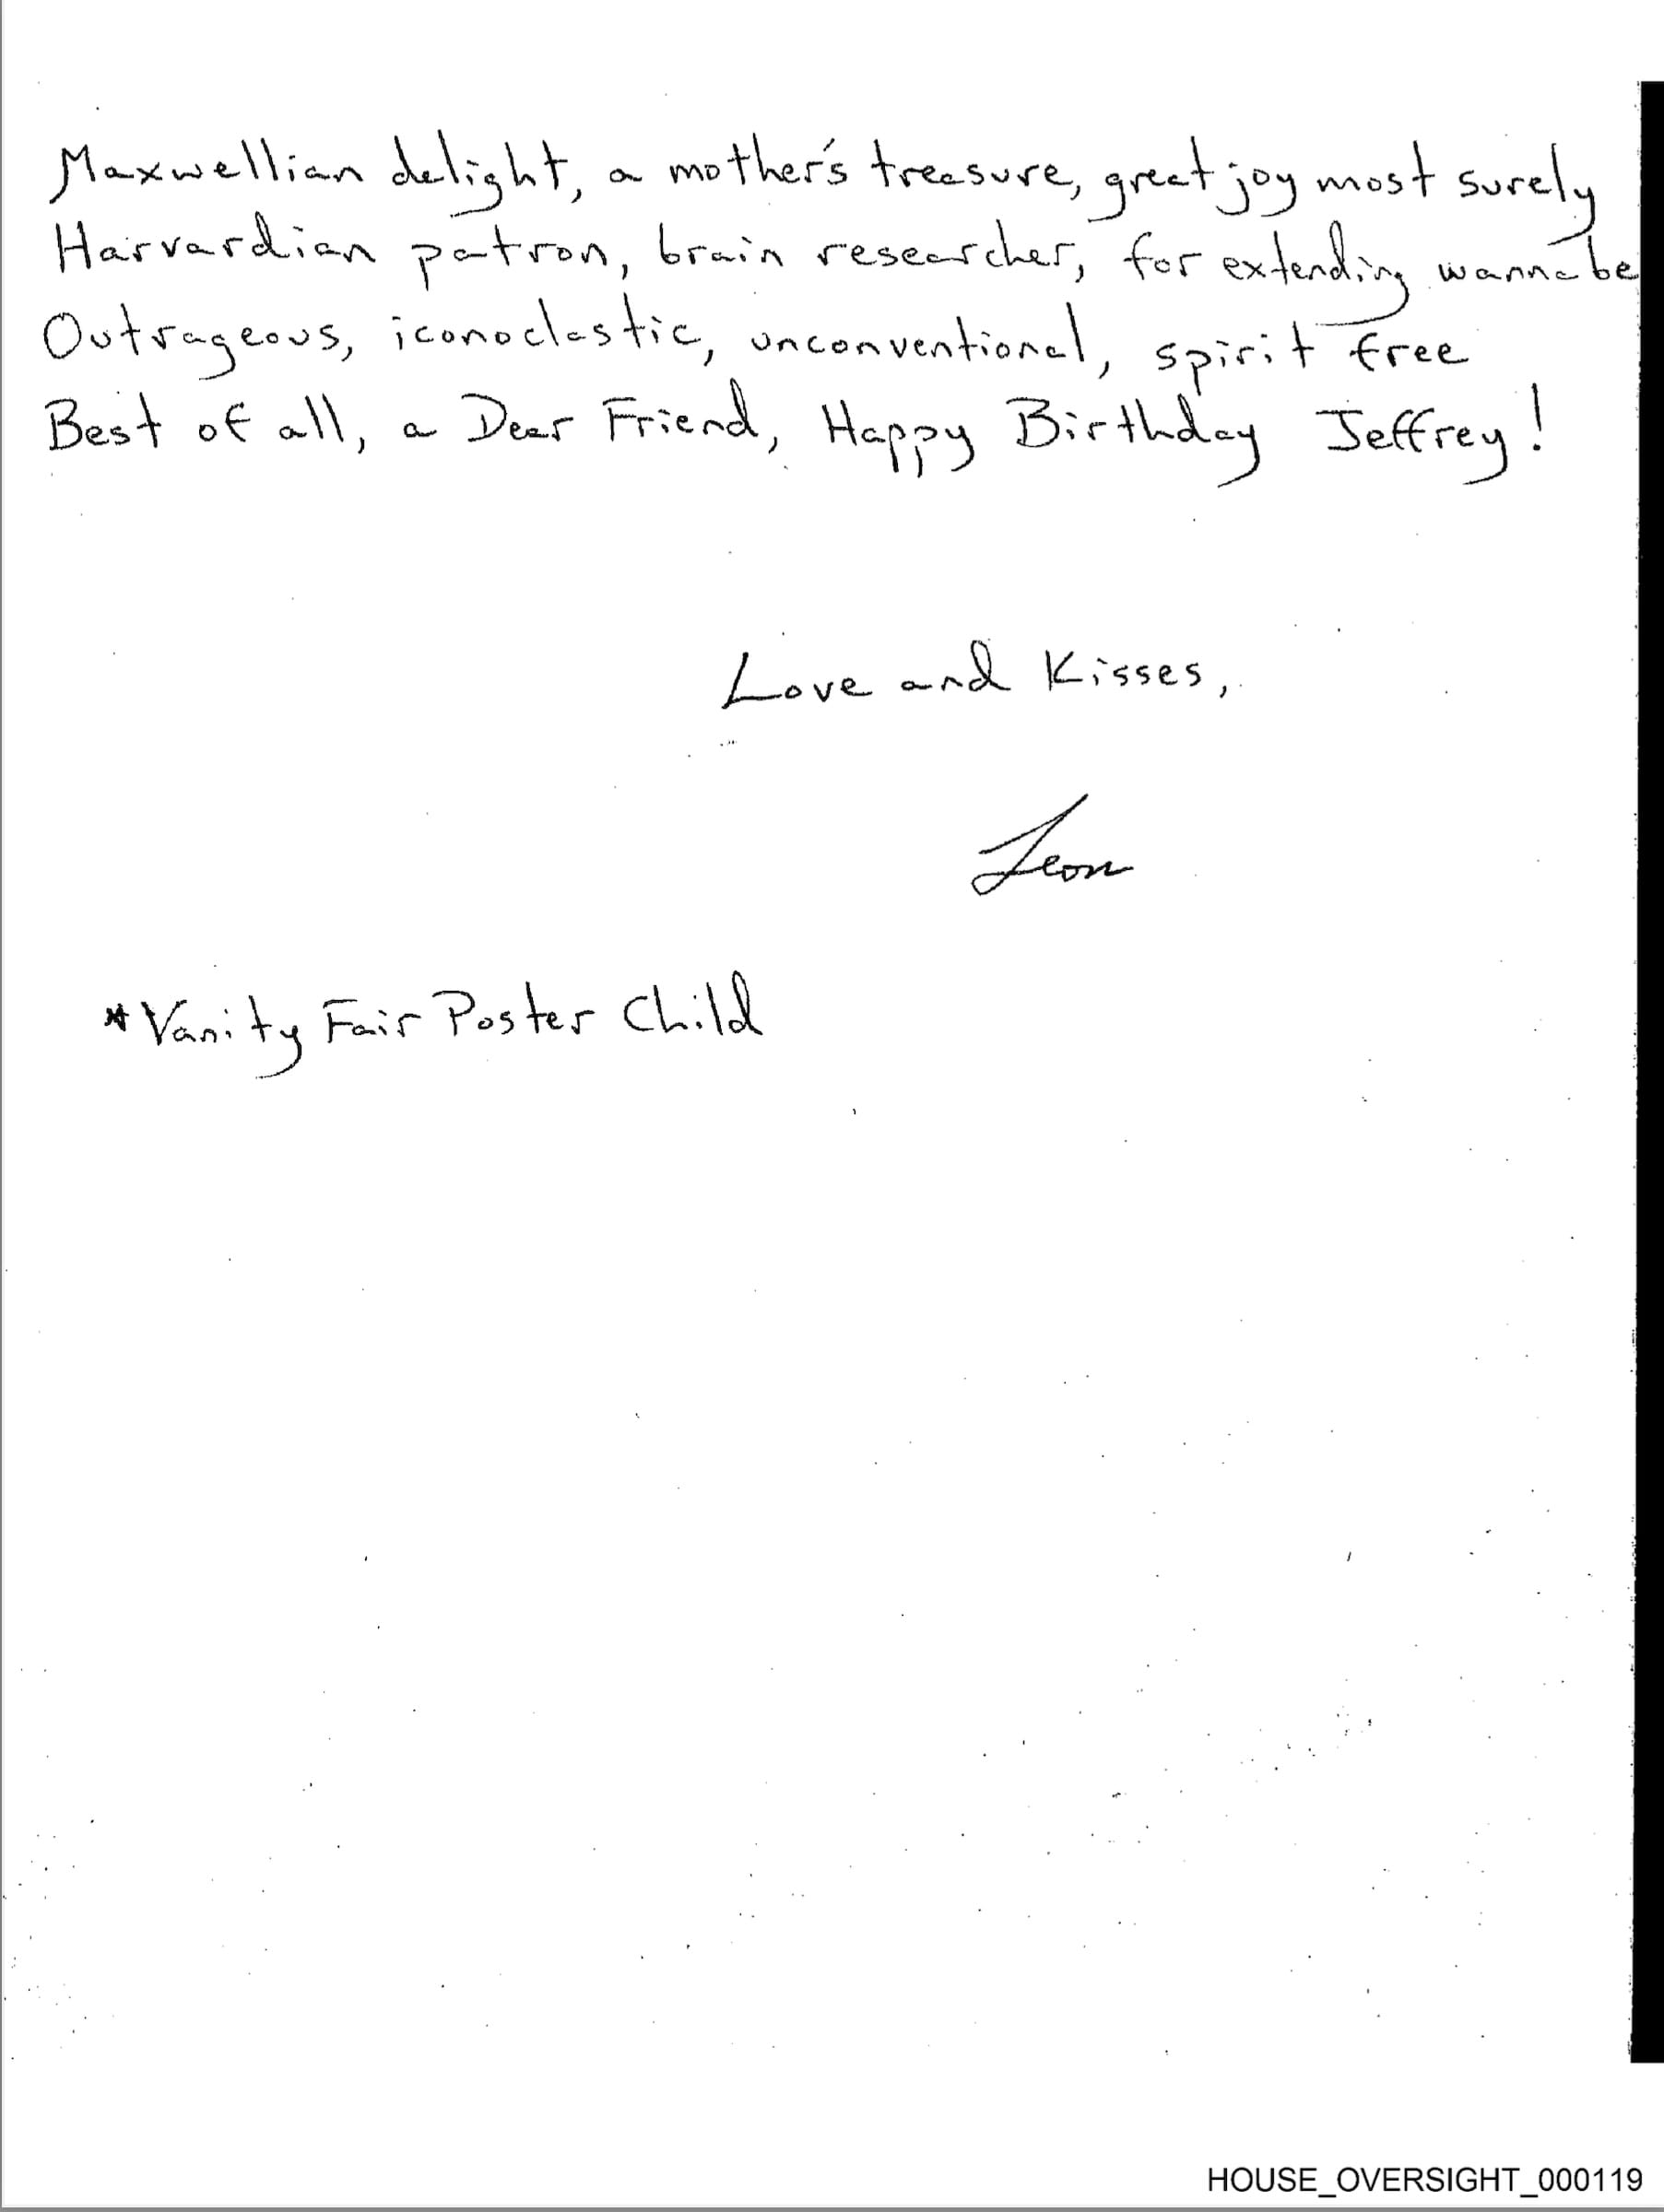 Maxwellian delight, a mother's treasure, great joy most surely
Harvardian patron, brain researcher, for extending wannabe
Outrageous, iconoclastic, unconventional, spirit free
Best of all, a Dear Friend, Happy Birthday Jeffrey!
Love and Kisses,
Leon
*Vanity Fair Poster Child
HOUSE_OVERSIGHT_000119